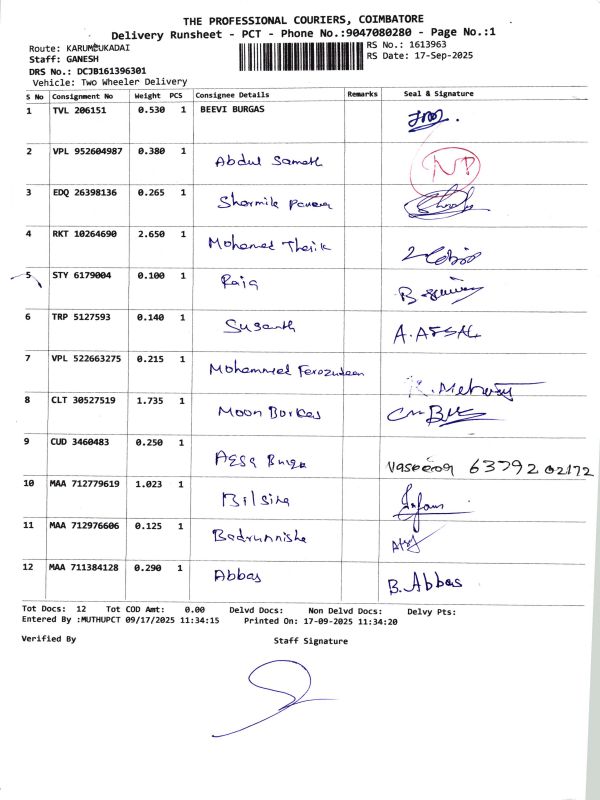 THE PROFESSIONAL COURIERS, COIMBATORE
Delivery Runsheet - PCT - Phone No.:9047080280 - Page No.:1
Route: KARUMBUKADAI
RS No.: 1613963
Staff: GANESH
RS Date: 17-Sep-2025
DRS No.: DCJB161396301
Vehicle: Two Wheeler Delivery
S No Consignment No Weight PCS Consignee Details Remarks Seal & Signature
1 TVL 206151 0.530 1 BEEVI BURGAS
2 VPL 952604987 0.380 1 Abdul Samath
3 EDQ 26398136 0.265 1 Sharmila
4 RKT 10264690 2.650 1 Mohamed Tharik
5 STY 6179004 0.100 1 Raja
6 TRP 5127593 0.140 1 Susanth A.AFSAL
7 VPL 522663275 0.215 1 Mohammed Ferozudeen
8 CLT 30527519 1.735 1 Moon Borkas
9 CUD 3460483 0.250 1 63792 02172
10 MAA 712779619 1.023 1
11 MAA 712976606 0.125 1 Badrunnisha
12 MAA 711384128 0.290 1 Abbas B.Abbas
Tot Docs: 12 Tot COD Amt: 0.00 Delvd Docs: Non Delvd Docs: Delvy Pts:
Entered By :MUTHUPCT 09/17/2025 11:34:15 Printed On: 17-09-2025 11:34:20
Verified By Staff Signature